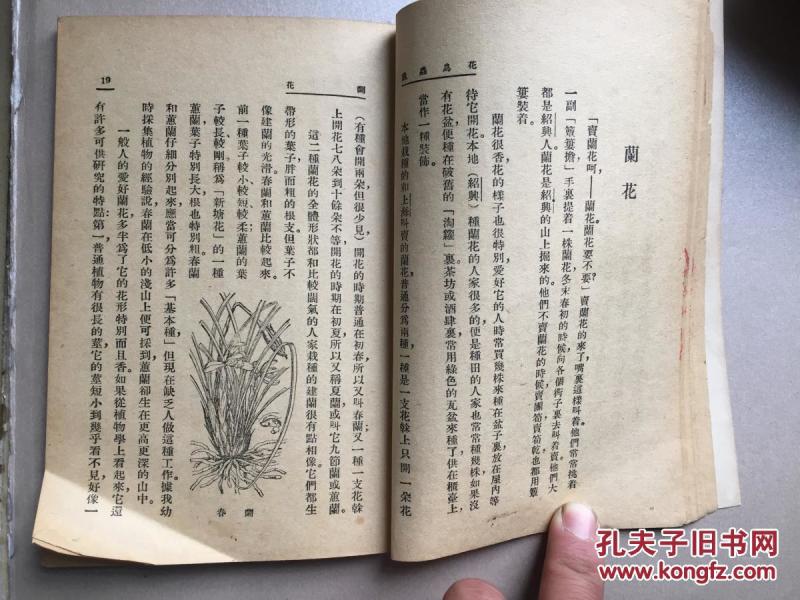 花鳥蟲魚
蘭花
「賣蘭花呵，——蘭花蘭花要不要？」賣蘭花的來了嘴裏這樣叫着他們常常挑着
一副「簑簍擔」手裏提着一株蘭花冬末春初的時候向各個街子裏去叫着賣他們大
都是紹興人蘭花是紹興的山上掘來的他們不賣蘭花的時候賣團筍賣筍乾也都用簑
簍裝着。
蘭花很香花的樣子也很特別愛好它的人時常買幾株來種在盆子裏放在屋內等
待它開花本地（紹興）種蘭花的人家很多的便是種田的人家也常常種幾株如果沒
有花盆便種在破舊的「淘籮」裏茶坊或酒肆裏常用綠色的瓦盆來種了供在櫃臺上
當作一種裝飾。
本地栽種的和上叫賣的蘭花普通分爲兩種，一種是一支花榦上只開一朶花
蘭花
19
（有種會開兩朶但很少見）開花的時期普通在初春所以又叫春蘭又一種一支花榦
上開花七八朶到十餘朶不等開花的時期在初夏所以又稱夏蘭或叫它九節蘭或蕙蘭。
這二種蘭花的全體形狀都和比較闊氣的人家栽種的建蘭很有點相像。它們都生
帶形的葉子胖而粗的根支。但葉子不
像建蘭的光滑春蘭和蕙蘭比較起來。
前一種葉子較小較短較柔蕙蘭的葉
子較長較剛稱爲「新塘花」的一種
蕙蘭葉子特別長大根也特別粗。春蘭
和蕙蘭仔細分別起來應當可分爲許多「基本種」但現在缺乏人做這種工作。據我幼
時採集植物的經驗說春蘭在低小的淺山上便可採到蕙蘭卻生在更高更深的山中。
一般人的愛好蘭花多半爲了它的花形特別而且香。如果從植物學上看起來它還
有許多可供研究的特點：第一普通植物有很長的莖它的莖短小到幾乎看不見好像一
蘭春
孔夫子旧书网
www.kongfz.com